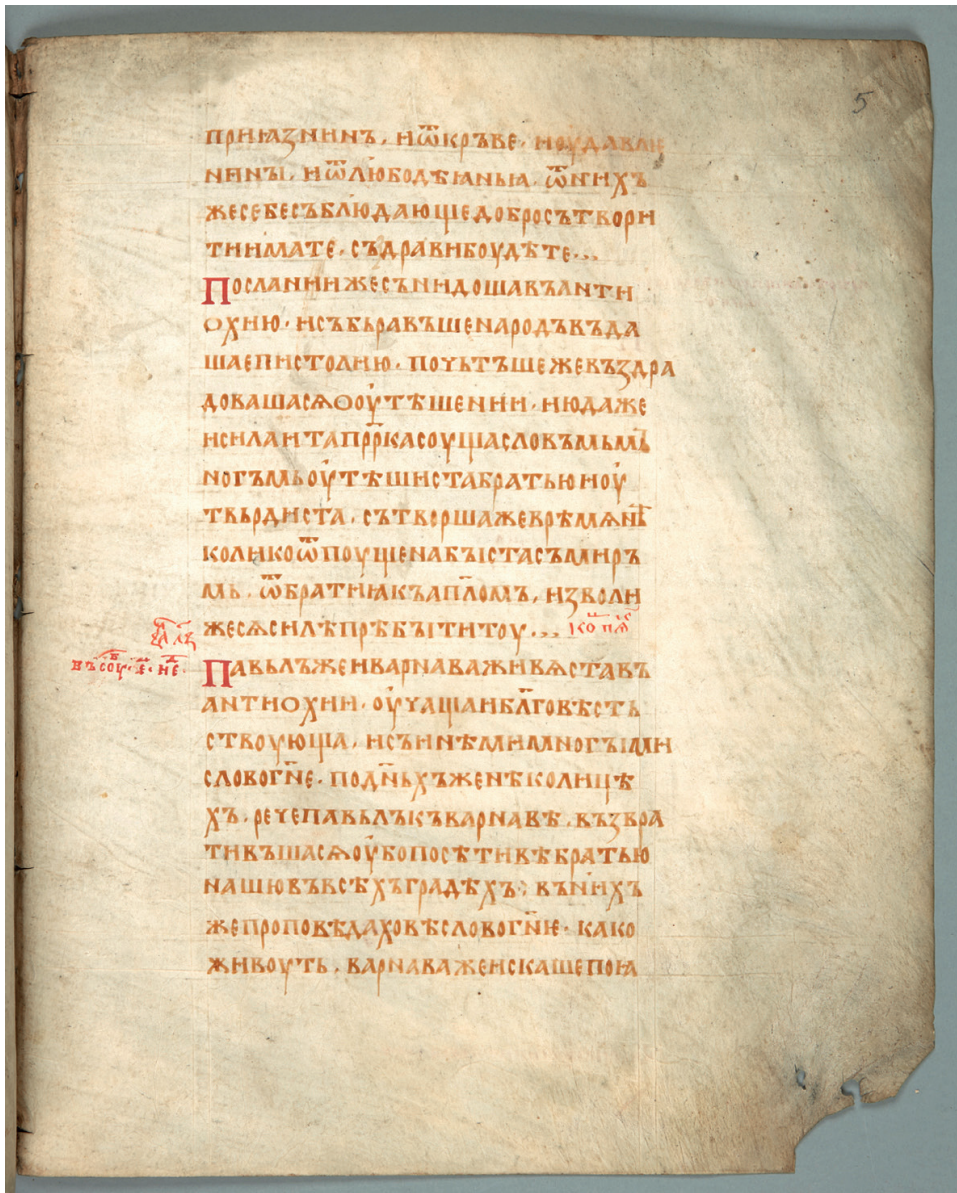 5
приꙗзнинъ· и ѿ кръве· и оудавле
нинꙑ· и ѿ любодѣꙗньꙗ· ѿ нихъ
же себе съблюдающе добро сътвори
ти имате· съдрави боудѣте···
Посланииже сънидоша въ анти
охию· и събьравъше народъ въда
ша епистолию· почьтъше же въздра
доваша сѧ о оутѣшении· июда же
и сила и та пр҃рка соуща словъмь мъ
ногъмь оутѣшиста братью и оу
твьрдиста· сътворша же врѣмѧ нѣ
колико ѿпоущена бꙑста съ миръ
мь· ѿ братиꙗ къ апл҃омъ· изволи
же сѧ силѣ прѣбꙑти тоу··· ко пѧ
Павьлъ же и варнава живѧста въ
въ соу· е· не·
антиохии· оучаща и бл҃говѣсть
ствоующа· и съ инѣми многꙑми
слово гн҃е· по дн҃ьхъ же нѣколицѣ
хъ· рече павьлъ къ варнавѣ· възвра
тивъша сѧ оубо посѣтивѣ братью
нашю въ вьсѣхъ градѣхъ· въ нихъ
же проповѣдаховѣ слово гн҃ѥ· како
живоуть· варнава же искаше поꙗ